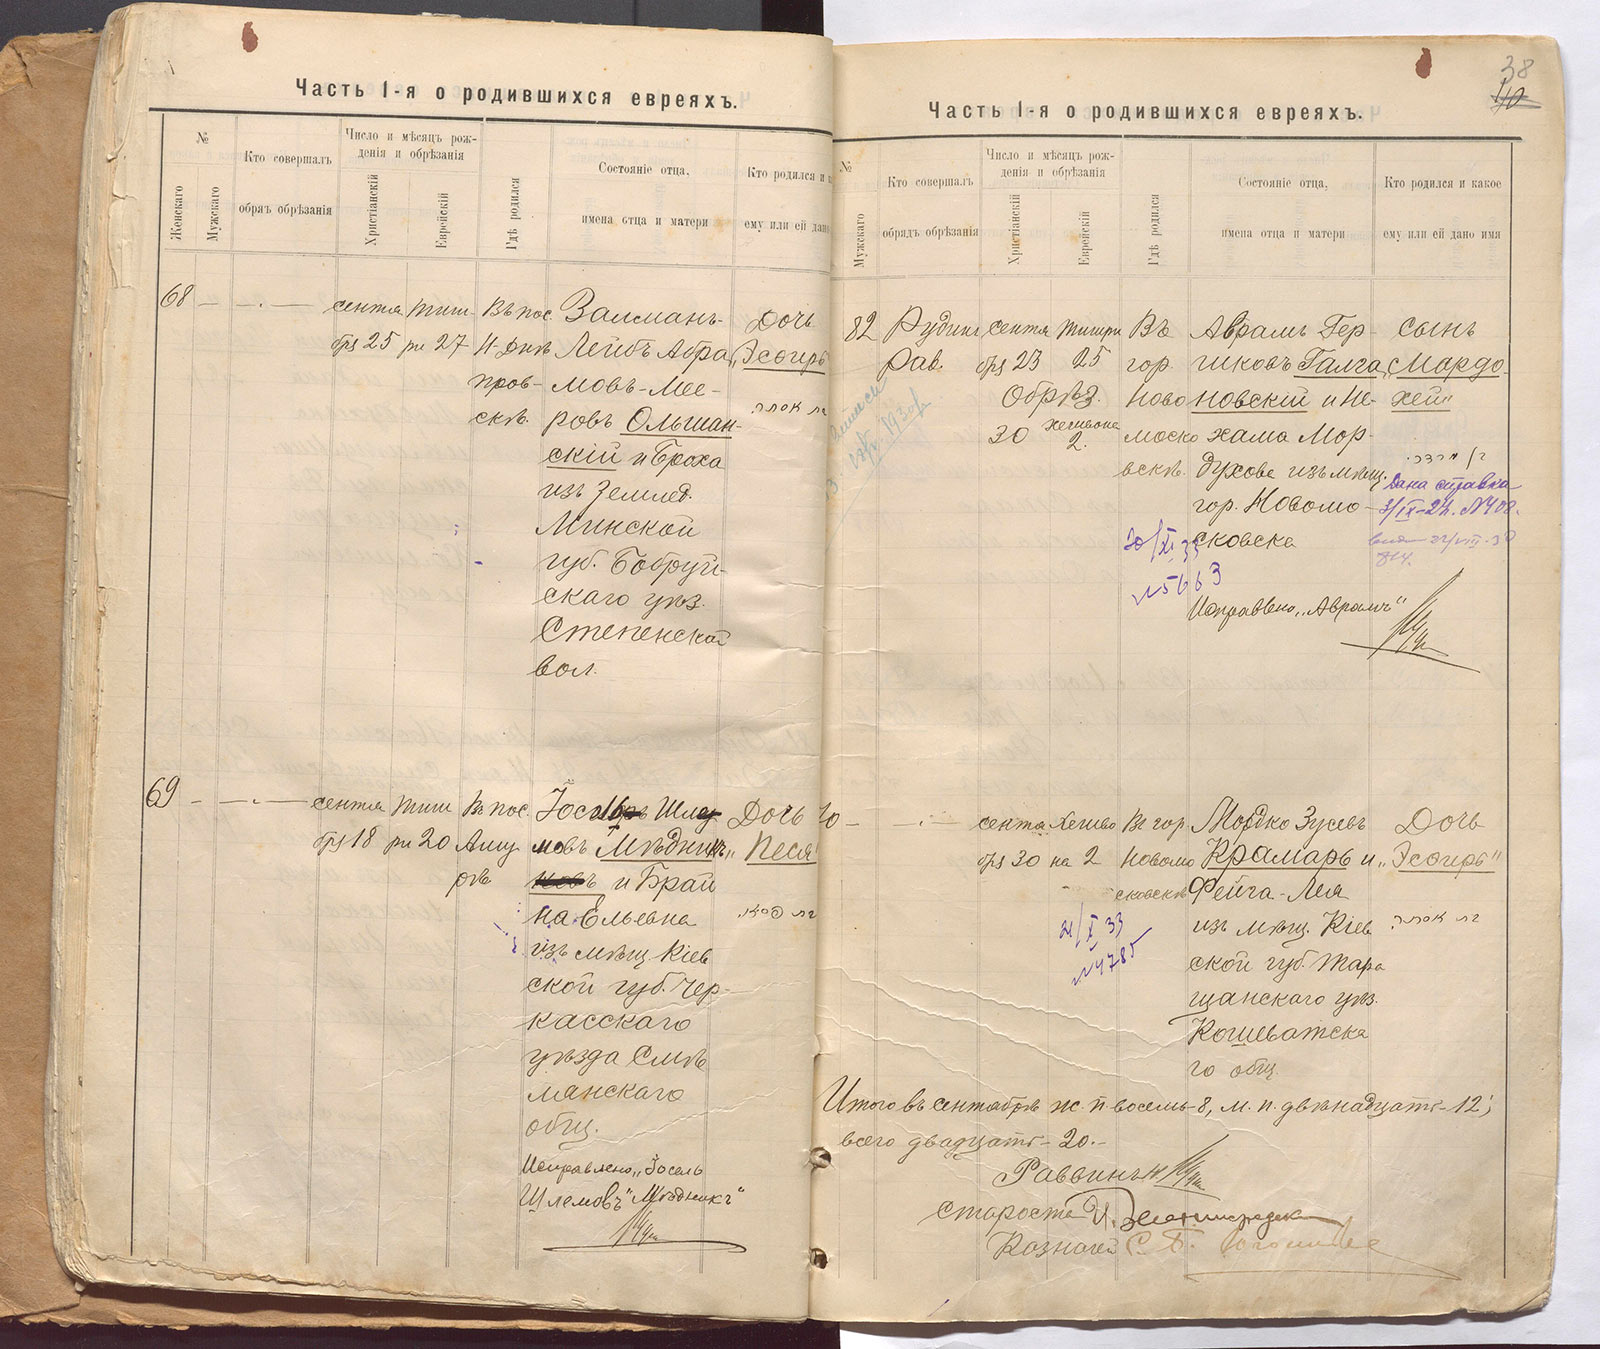 Часть I-я о родившихся евреяхъ.
№
Женскаго
Мужскаго
Кто совершалъ
обрядъ обрѣзанія
Число и мѣсяцъ рож-
денія и обрѣзанія
Христіанскій
Еврейскій
Гдѣ родился
Состояніе отца,
имена отца и матери
Кто родился и к
ему или ей дано
68
сентя
бря 25
Тиш-
ри 27
Въ пос.
Н. Днѣ
пров-
скѣ.
Залманъ-
Лейбъ Абра
мовъ-Мее-
ровъ Ольшан-
скій и Броха
изъ Землед.
Минской
губ. Бобруй-
скаго уѣз.
Степенской
вол.
Дочь
„Эсѳирь"
69
сентя
бря 18
Тиш
ри 20
Въ пос.
Аму
рѣ
Шлей
мовъ Мѣдникъ
и Брай
на Ельевна
изъ мѣщ. Кіев
ской губ. Чер-
касскаго
уѣзда Смѣ
лянскаго
общ.
Исправлено „Іосель
Шлемовъ" „Мѣдникъ"
Дочь
„Песя"
38
40
Часть I-я о родившихся евреяхъ.
№
Мужскаго
Кто совершалъ
обрядъ обрѣзанія
Число и мѣсяцъ рож-
денія и обрѣзанія
Христіанскій
Еврейскій
Гдѣ родился
Состояніе отца,
имена отца и матери
Кто родился и какое
ему или ей дано имя
82
Рудинъ
Рав.
сентя
бря 23
Обрѣз.
30
Тишри
25
Хешвона
2.
Въ
гор.
Ново
моско
вскѣ.
Аврамъ Гер-
шковъ Галга
новскій и Не-
хама Мор-
духова изъ мѣщ.
гор. Новомо-
сковска
Исправлено „Аврамъ"
сынъ
„Мардо
хей"
Дана справка
3/IX-24. №408.
20/XI 33
№5663
70
сентя
бря 30
Хешво
на 2
Въ гор.
Новомо
сковскѣ
Мордко Зусевъ
Крамарь и
Фейга-Лея
изъ мѣщ. Кіев
ской губ. Тара
щанскаго уѣз.
Кошеватска
го общ.
Дочь
„Эсѳирь"
21/X 33
№4785
Итого въ сентябрѣ ж. п. восемь-8, м. п. двѣнадцать-12;
всего двадцать-20.-
Раввинъ
Староста
Казначей